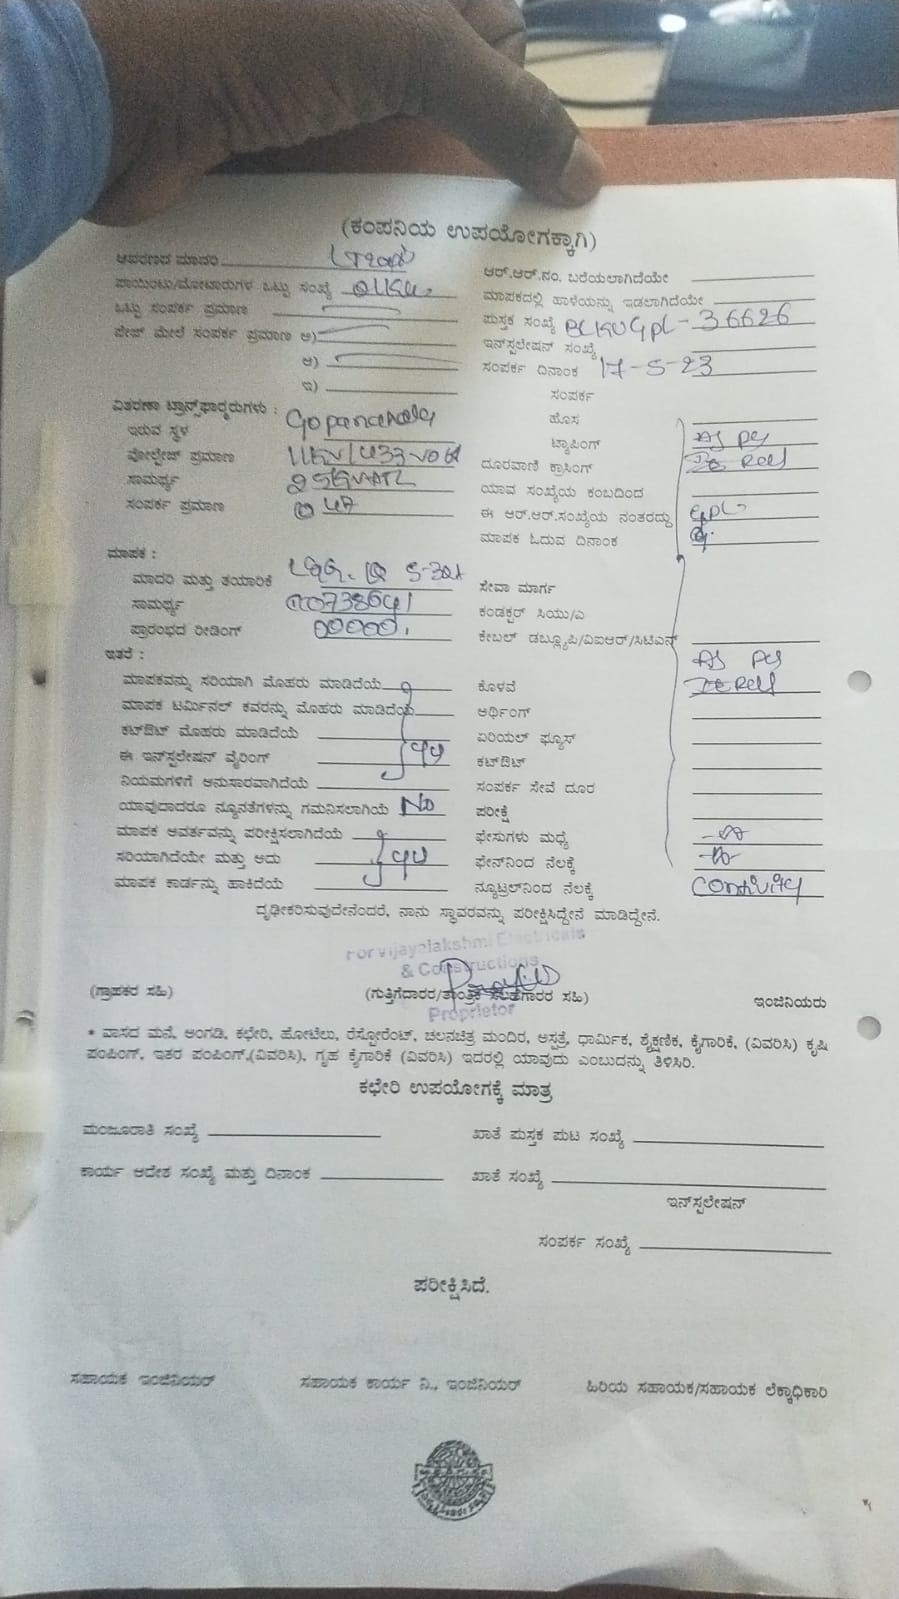 (ಕಂಪನಿಯ ಉಪಯೋಗಕ್ಕಾಗಿ)
ಆವರಣದ ಮಾದರಿ
ಪಾಯಿಂಟು/ಮೋಟಾರುಗಳ ಒಟ್ಟು ಸಂಖ್ಯೆ
ಒಟ್ಟು ಸಂಪರ್ಕ ಪ್ರಮಾಣ
ಪೇಜ್ ಮೇಲೆ ಸಂಪರ್ಕ ಪ್ರಮಾಣ ಅ)
ಆ)
ಇ)
ವಿತರಣಾ ಟ್ರಾನ್ಸ್‌ಫಾರ್ಮರುಗಳು :
ಇರುವ ಸ್ಥಳ
ವೋಲ್ಟೇಜ್ ಪ್ರಮಾಣ
ಸಾಮರ್ಥ್ಯ
ಸಂಪರ್ಕ ಪ್ರಮಾಣ
ಮಾಪಕ :
ಮಾದರಿ ಮತ್ತು ತಯಾರಿಕೆ
ಸಾಮರ್ಥ್ಯ
ಪ್ರಾರಂಭದ ರೀಡಿಂಗ್ 00000
ಇತರೆ :
ಮಾಪಕವನ್ನು ಸರಿಯಾಗಿ ಮೊಹರು ಮಾಡಿದೆಯೆ
ಮಾಪಕ ಟರ್ಮಿನಲ್ ಕವರನ್ನು ಮೊಹರು ಮಾಡಿದೆಯೆ
ಕಟ್‌ಔಟ್ ಮೊಹರು ಮಾಡಿದೆಯೆ
ಈ ಇನ್‌ಸ್ಟಲೇಷನ್ ವೈರಿಂಗ್
ನಿಯಮಗಳಿಗೆ ಅನುಸಾರವಾಗಿದೆಯೆ
ಯಾವುದಾದರೂ ನ್ಯೂನತೆಗಳನ್ನು ಗಮನಿಸಲಾಗಿಯೆ No
ಮಾಪಕ ಆವರ್ತವನ್ನು ಪರೀಕ್ಷಿಸಲಾಗಿದೆಯೆ
ಸರಿಯಾಗಿದೆಯೇ ಮತ್ತು ಅದು
ಮಾಪಕ ಕಾರ್ಡನ್ನು ಹಾಕಿದೆಯೆ
ಆರ್.ಆರ್.ನಂ. ಬರೆಯಲಾಗಿದೆಯೇ
ಮಾಪಕದಲ್ಲಿ ಹಾಳೆಯನ್ನು ಇಡಲಾಗಿದೆಯೇ
ಪುಸ್ತಕ ಸಂಖ್ಯೆ BLKUGPL-36626
ಇನ್‌ಸ್ಟಲೇಷನ್ ಸಂಖ್ಯೆ
ಸಂಪರ್ಕ ದಿನಾಂಕ 17-5-23
ಸಂಪರ್ಕ
ಹೊಸ
ಟ್ಯಾಪಿಂಗ್ As per
ದೂರವಾಣಿ ಕ್ರಾಸಿಂಗ್
ಯಾವ ಸಂಖ್ಯೆಯ ಕಂಬದಿಂದ
ಈ ಆರ್.ಆರ್.ಸಂಖ್ಯೆಯ ನಂತರದ್ದು GPL-
ಮಾಪಕ ಓದುವ ದಿನಾಂಕ
ಸೇವಾ ಮಾರ್ಗ
ಕಂಡಕ್ಟರ್ ಸಿಯು/ಎ
ಕೇಬಲ್ ಡಬ್ಲ್ಯೂಪಿ/ವಿಐಆರ್/ಸಿಟಿಎನ್
As per
ಕೊಳವೆ
ಆರ್ಥಿಂಗ್
ಏರಿಯಲ್ ಫ್ಯೂಸ್
ಕಟ್‌ಔಟ್
ಸಂಪರ್ಕ ಸೇವೆ ದೂರ
ಪರೀಕ್ಷೆ
ಫೇಸುಗಳು ಮಧ್ಯೆ
ಫೇಸ್‌ನಿಂದ ನೆಲಕ್ಕೆ
ನ್ಯೂಟ್ರಲ್‌ನಿಂದ ನೆಲಕ್ಕೆ
ದೃಢೀಕರಿಸುವುದೇನೆಂದರೆ, ನಾನು ಸ್ಥಾವರವನ್ನು ಪರೀಕ್ಷಿಸಿದ್ದೇನೆ ಮಾಡಿದ್ದೇನೆ.
For Vijayalakshmi Electricals
& Constructions
(ಗ್ರಾಹಕರ ಸಹಿ) (ಗುತ್ತಿಗೆದಾರರ/ತಾಂತ್ರಿಕ ಗುತ್ತಿಗೆದಾರರ ಸಹಿ) ಇಂಜಿನಿಯರು
Proprietor
* ವಾಸದ ಮನೆ, ಅಂಗಡಿ, ಕಛೇರಿ, ಹೋಟೆಲು, ರೆಸ್ಟೋರೆಂಟ್, ಚಲನಚಿತ್ರ ಮಂದಿರ, ಆಸ್ಪತ್ರೆ, ಧಾರ್ಮಿಕ, ಶೈಕ್ಷಣಿಕ, ಕೈಗಾರಿಕೆ, (ವಿವರಿಸಿ) ಕೃಷಿ
ಪಂಪಿಂಗ್, ಇತರ ಪಂಪಿಂಗ್,(ವಿವರಿಸಿ), ಗೃಹ ಕೈಗಾರಿಕೆ (ವಿವರಿಸಿ) ಇದರಲ್ಲಿ ಯಾವುದು ಎಂಬುದನ್ನು ತಿಳಿಸಿರಿ.
ಕಛೇರಿ ಉಪಯೋಗಕ್ಕೆ ಮಾತ್ರ
ಮಂಜೂರಾತಿ ಸಂಖ್ಯೆ ಖಾತೆ ಪುಸ್ತಕ ಪುಟ ಸಂಖ್ಯೆ
ಕಾರ್ಯ ಆದೇಶ ಸಂಖ್ಯೆ ಮತ್ತು ದಿನಾಂಕ ಖಾತೆ ಸಂಖ್ಯೆ
ಇನ್‌ಸ್ಟಲೇಷನ್
ಸಂಪರ್ಕ ಸಂಖ್ಯೆ
ಪರೀಕ್ಷಿಸಿದೆ.
ಸಹಾಯಕ ಇಂಜಿನಿಯರ್ ಸಹಾಯಕ ಕಾರ್ಯ ನಿ., ಇಂಜಿನಿಯರ್ ಹಿರಿಯ ಸಹಾಯಕ/ಸಹಾಯಕ ಲೆಕ್ಕಾಧಿಕಾರಿ